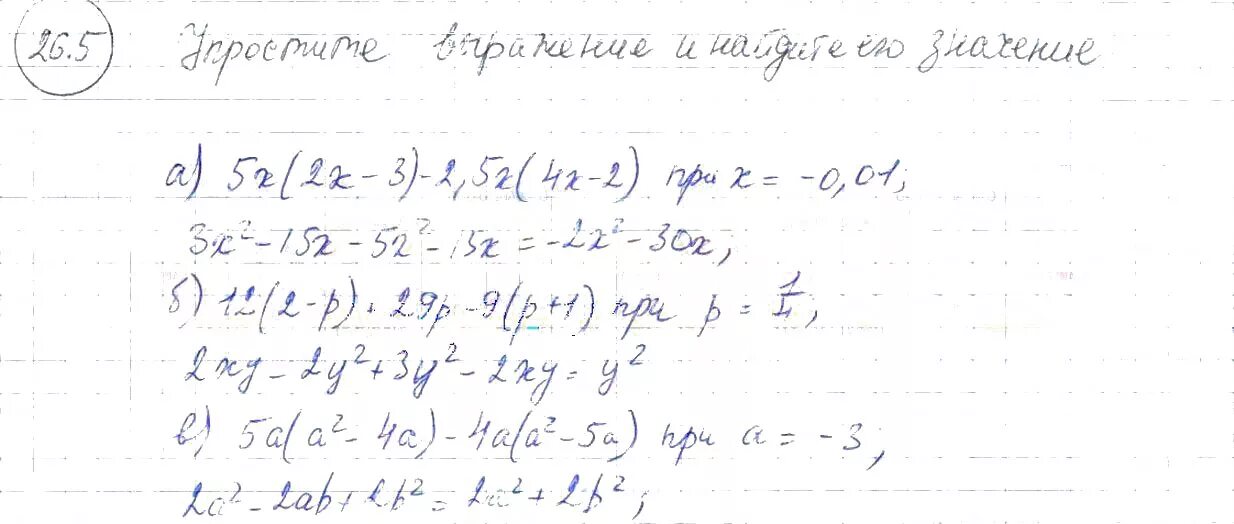 26.5 Упростите выражение и найдите его значение
а) 5x(2x-3)-2,5x(4x-2) при x = -0,01;
3x²-15x-5x²-15x = -2x²-30x;
б) 12(2-p)+29p-9(p+1) при p = 1/4;
2xy-2y²+3y²-2xy = y²
в) 5a(a²-4a)-4a(a²-5a) при a = -3;
2a²-2ab+2b² = 2a²+2b²;